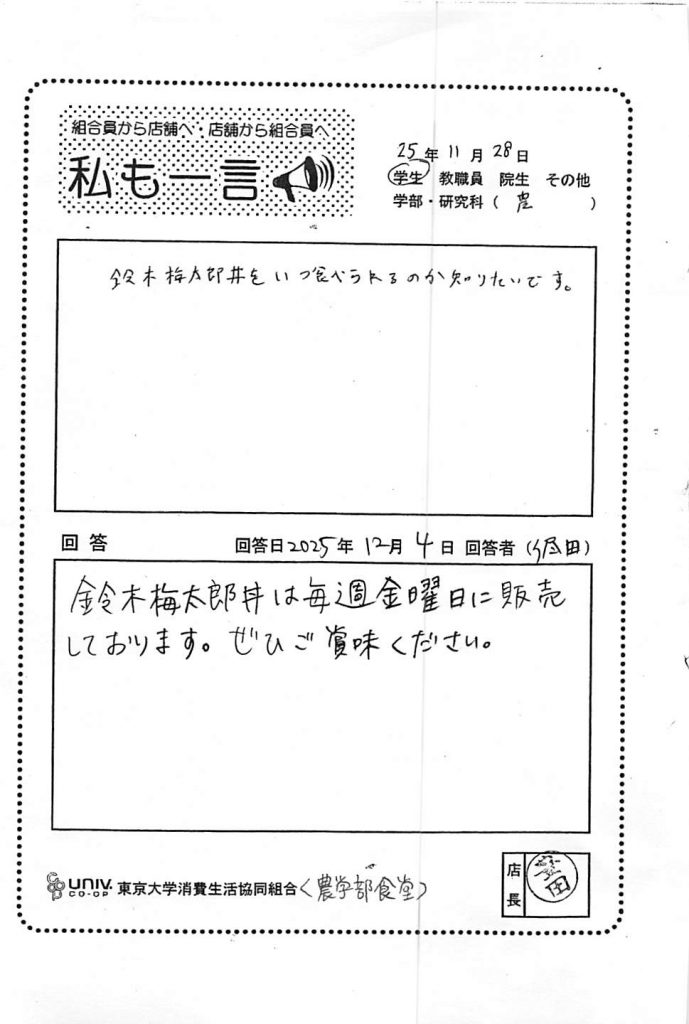 組合員から店舗へ・店舗から組合員へ
私も一言
25年11月28日
学生 教職員 院生 その他
学部・研究科（ 農 ）
鈴木梅太郎丼をいつ食べられるのか知りたいです。
回答 回答日2025年12月4日 回答者（ 田）
鈴木梅太郎丼は毎週金曜日に販売
しております。ぜひご賞味ください。
UNIV.
CO-OP
東京大学消費生活協同組合（農学部食堂）
店長
田